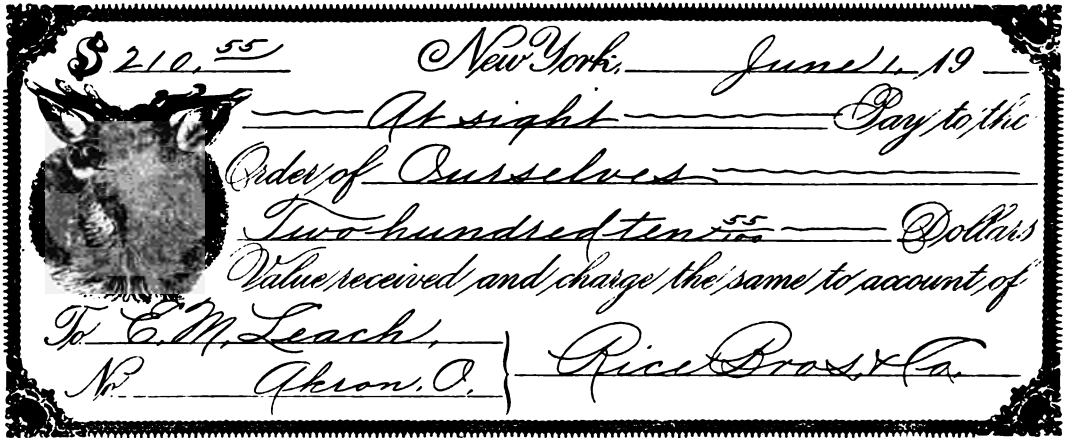 $ 210.55 New York, June 1, 19
At sight Pay to the
Order of Ourselves
Two hundred ten 55/100 Dollars
Value received and charge the same to account of
To E. M. Leach,
Rice Bros. & Co.
No. Akron, O.